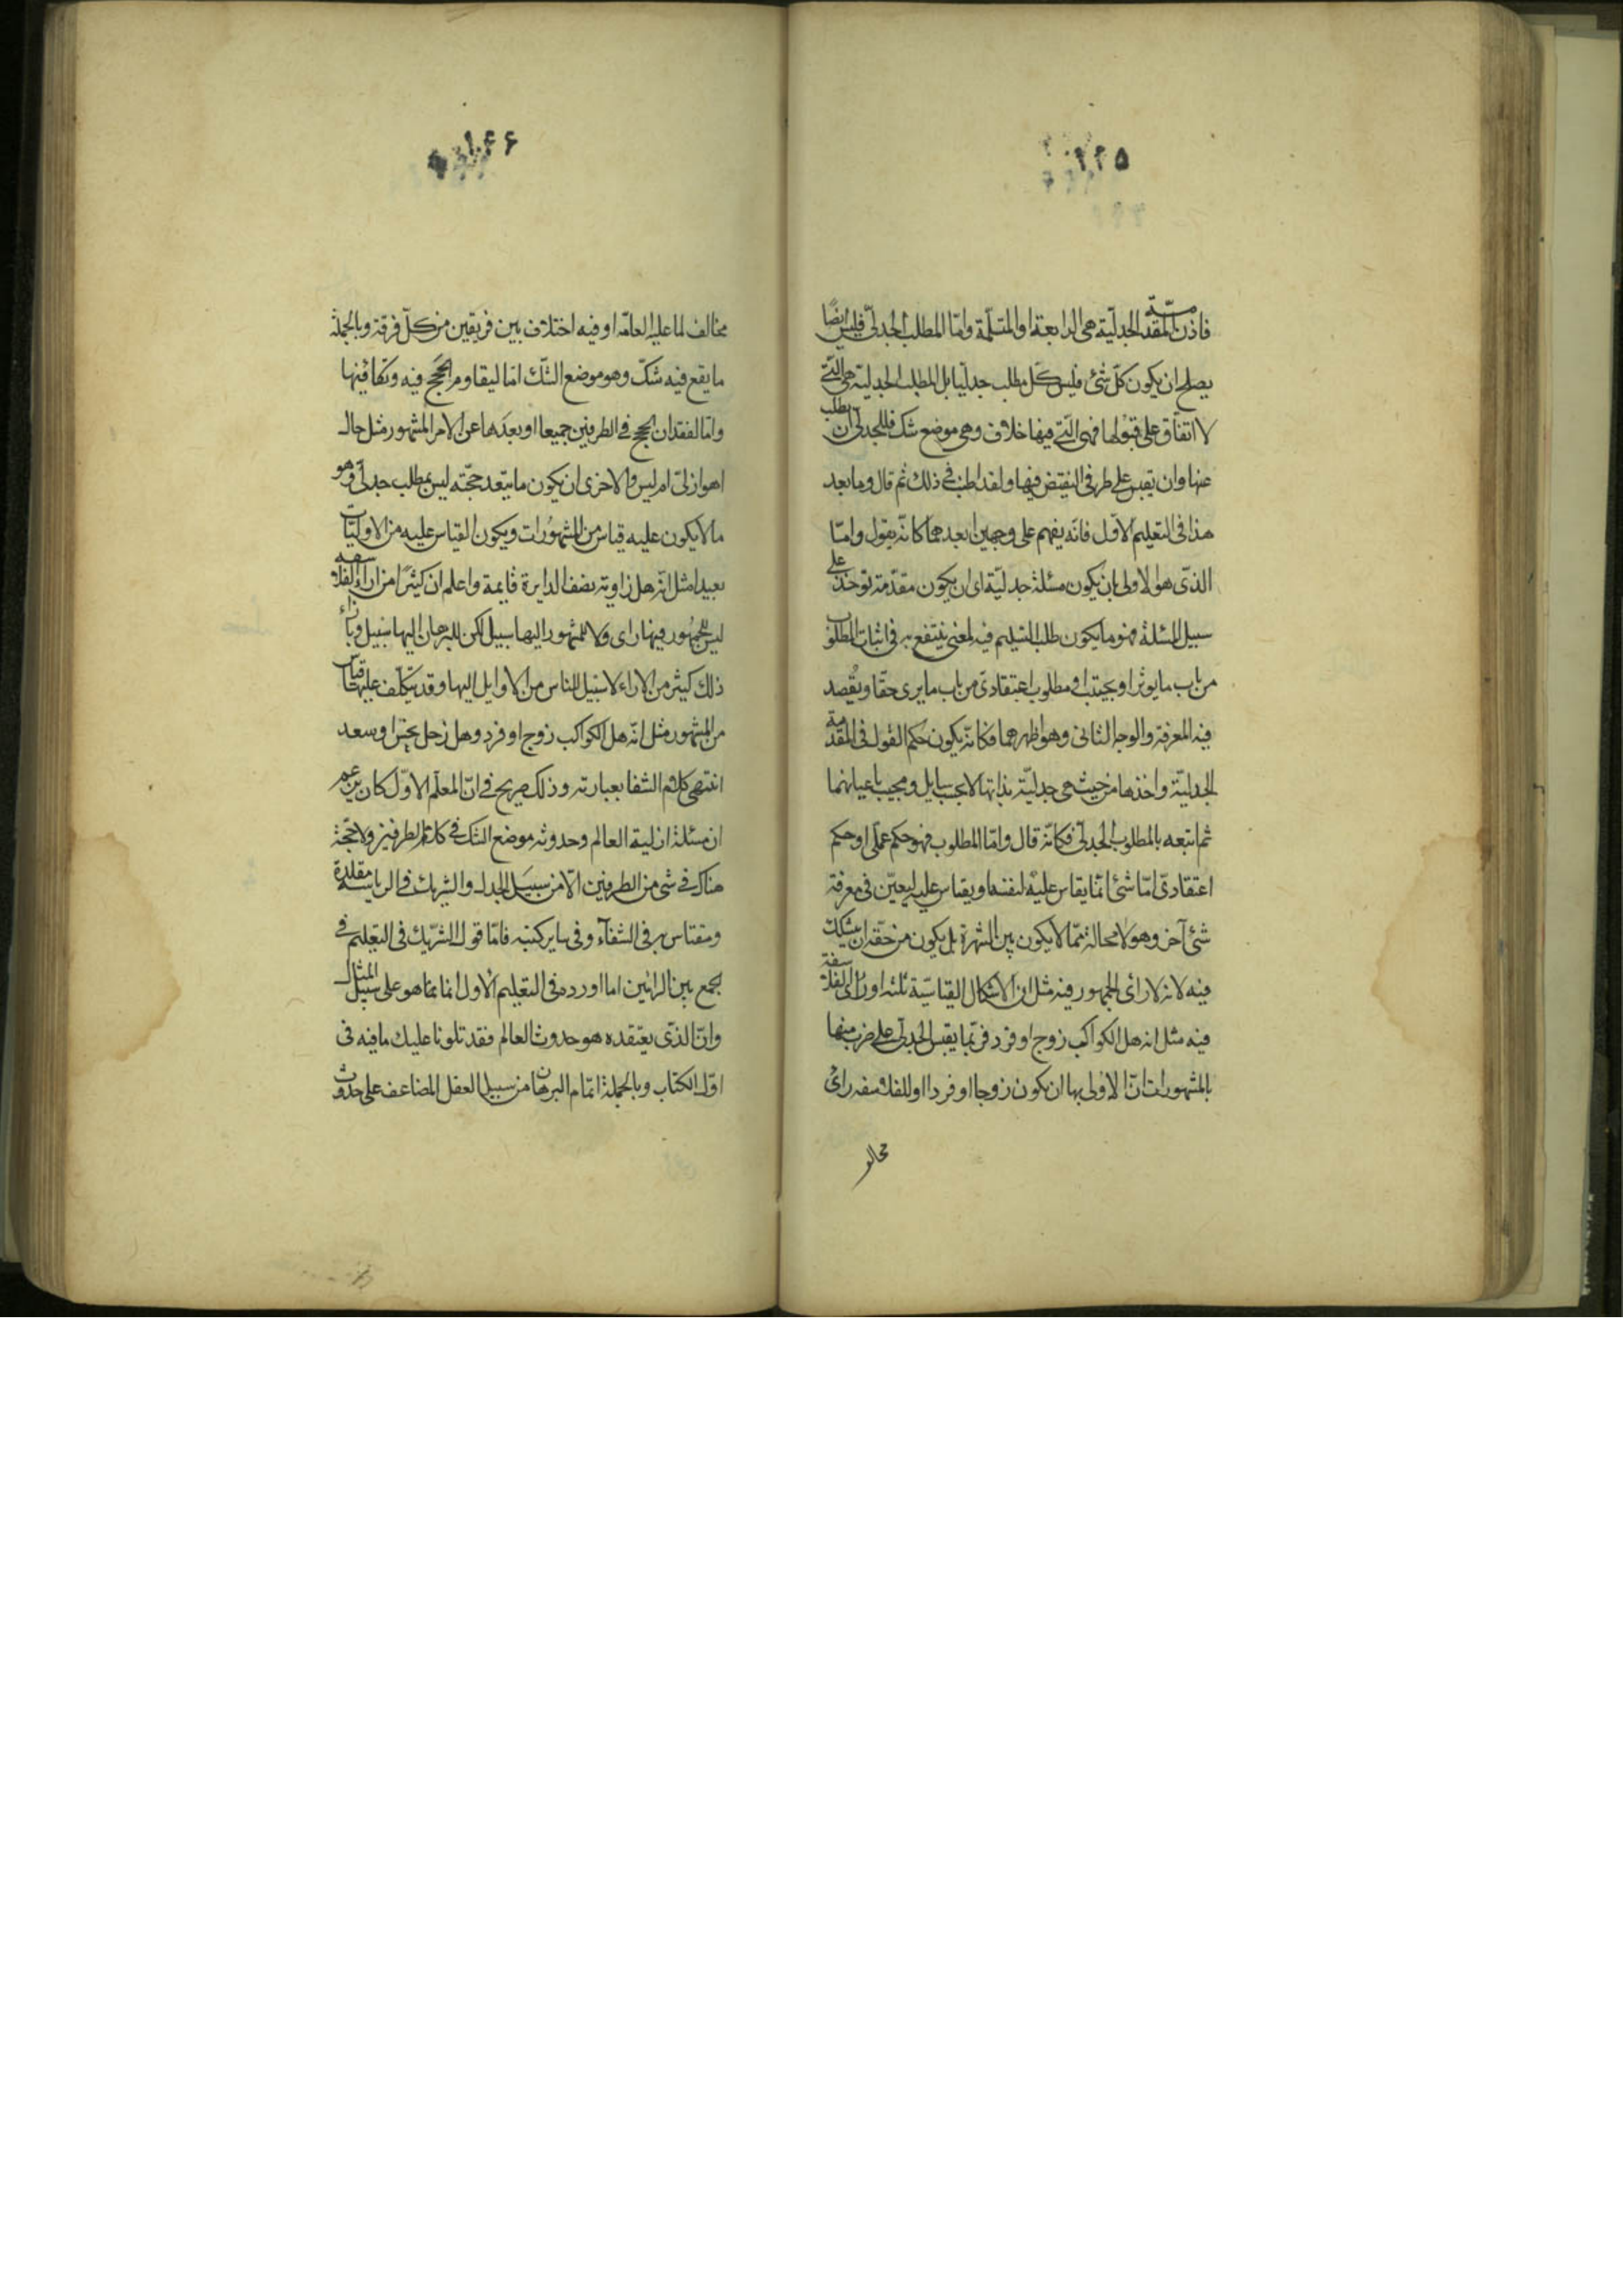 ٢٢٥
فاذن المقدمة الجدلية هى الرابعة او المتسلمة واما المطلب الجدلى فليس ايضا
يصلح ان يكون كل شئ فليس كل مطلب جدليا بل المطلب الجدلية هى التى
لا اتفاق على قبولها فهى التى فيها خلاف وهى موضع شك فللجدلى ان يطلب
عنها وان يقيس على طرفى النقيض فيها ولقد اطنب فى ذلك ثم قال وما بعد
هذا فى التعليم الاول فانه يفهم على وجهين ابعدهما كانه يقول واما
الذى هو الاولى بان يكون مسئلة جدلية اى ان يكون مقدمة توخذ على
سبيل المسئلة فهو ما يكون طلب التسليم فيه لمعنى ينتفع به فى اثبات المطلوب
من باب ما يوثر او يجتنب او مطلوب اعتقادى من باب ما يرى حقا ويقصد
فيه المعرفة والوجه الثانى وهو اظهرهما فكانه يكون حكم القول فى المقدمة
الجدلية واخذها من حيث هى جدلية بذاتها لا بحسب سايل ومجيب باعيانهما
ثم اتبعه بالمطلوب الجدلى فكانه قال واما المطلوب فهو حكم عملى او حكم
اعتقادى اما شئ انما يقاس عليه لنفسه او يقاس عليه ليعين فى معرفة
شئ آخر وهو لا محالة مما لا يكون بين الشهرة بل يكون من حقه ان يتشكك
فيه لانه لا راى للجمهور فيه مثل ان الاشكال القياسية ثلثه او راى للفلاسفة
فيه مثل انه هل الكواكب زوج او فرد فربما يقيس الجدلى على ضرب منها
بالمشهورات ان الاولى بها ان يكون زوجا او فردا او للفلاسفه راى
مخالف
١٦٦
مخالف لما عليه العامه او فيه اختلاف بين فريقين من كل فرقة وبالجملة
ما يقع فيه شك وهو موضع الشك اما ليقاوم الحجج فيه وتكافئها
واما لفقدان الحجج فى الطرفين جميعا او بعدها عن الامر المشهور مثل حال
اهو ازلى ام ليس والاخرى ان يكون ما يبعد حجته ليس بمطلب جدلى وهو
ما لا يكون عليه قياس من المشهورات ويكون القياس عليه من الاوليات
بعيدا مثل انه هل زاوية نصف الدايرة قايمة واعلم ان كثيرا من اراء الفلاسفه
ليس للجمهور فيها راى ولا للمشهور اليها سبيل لكن للبرهان اليها سبيل وبازاء
ذلك كثير من الاراء لا سبيل للناس من الاوايل اليها وقد يتكلف عليها قياسات
من المشهور مثل انه هل الكواكب زوج او فرد وهل زحل نحس او سعد
انتهى كلام الشفا بعبارته وذلك صريح فى ان المعلم الاول كان يزعم
ان مسئلة ازلية العالم وحدوثه موضع الشك فى كلا الطرفين ولا حجة
هناك فى شى من الطرفين الا من سبيل الجدل والشريك فى الرياسة مقلده
ومقتاس به فى الشفآء وفى ساير كتبه فاما قول الشريك فى التعليم فى
الجمع بين الرائين اما اورده فى التعليم الاول انما هو على سبيل المثال
وان الذى يعتقده هو حدوث العالم فقد تلونا عليك ما فيه فى
اول الكتاب وبالجملة اتمام البرهان من سبيل العقل المضاعف على حدوث